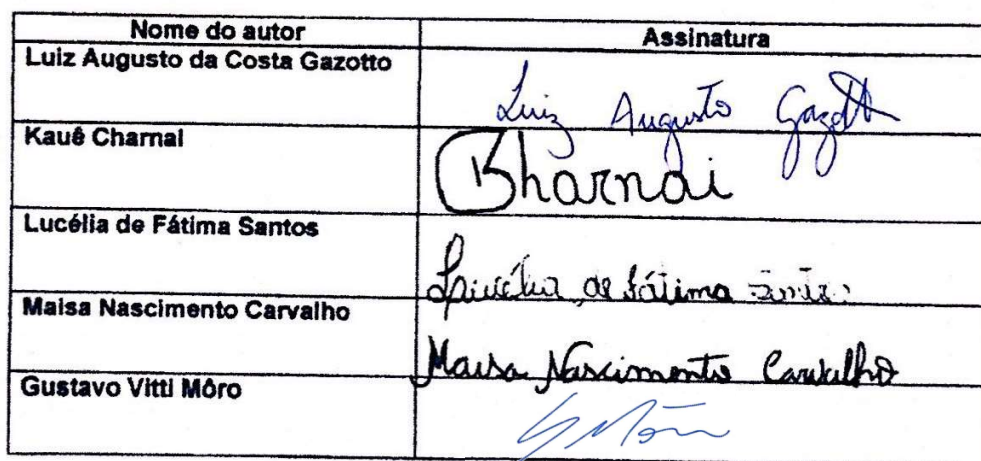 Nome do autor Assinatura
Luiz Augusto da Costa Gazotto
Luiz Augusto Gazotto
Kauê Charnai
Charnai
Lucélia de Fátima Santos
Lucélia de Fátima Santos
Maisa Nascimento Carvalho
Maisa Nascimento Carvalho
Gustavo Vitti Môro